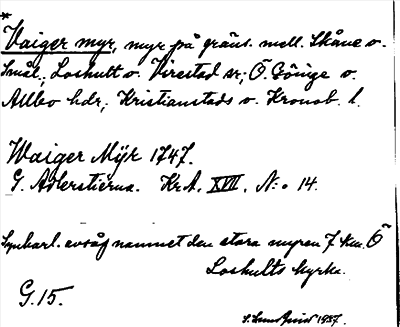 *
Vaiger myr, myr på gräns. mell. Skåne o.
Smål., Loshult o. Virestad sr; Ö. Göinge o.
Allbo hdr; Kristianstads o. Kronob. l.
Waiger Mÿr 1747.
G. Adlerstierna. Kr. A. XVII. N:o 14.
avsåg namnet den stora myren 7 km. Ö
Loshults kyrka.
G. 15.
1937.